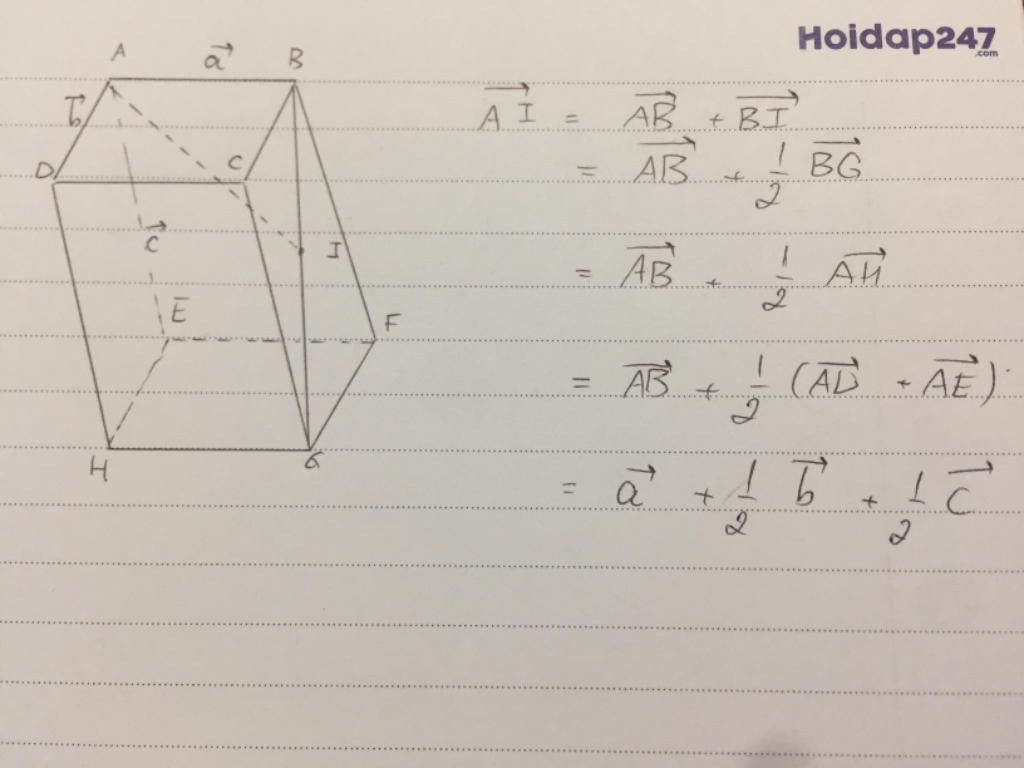 Hoidap247
.com
A a⃗ B
b⃗
D C
c⃗ I
E F
H G
A⃗I⃗ = A⃗B⃗ + B⃗I⃗
= A⃗B⃗ + 1/2 B⃗G⃗
= A⃗B⃗ + 1/2 A⃗H⃗
= A⃗B⃗ + 1/2 (A⃗D⃗ + A⃗E⃗)
= a⃗ + 1/2 b⃗ + 1/2 c⃗